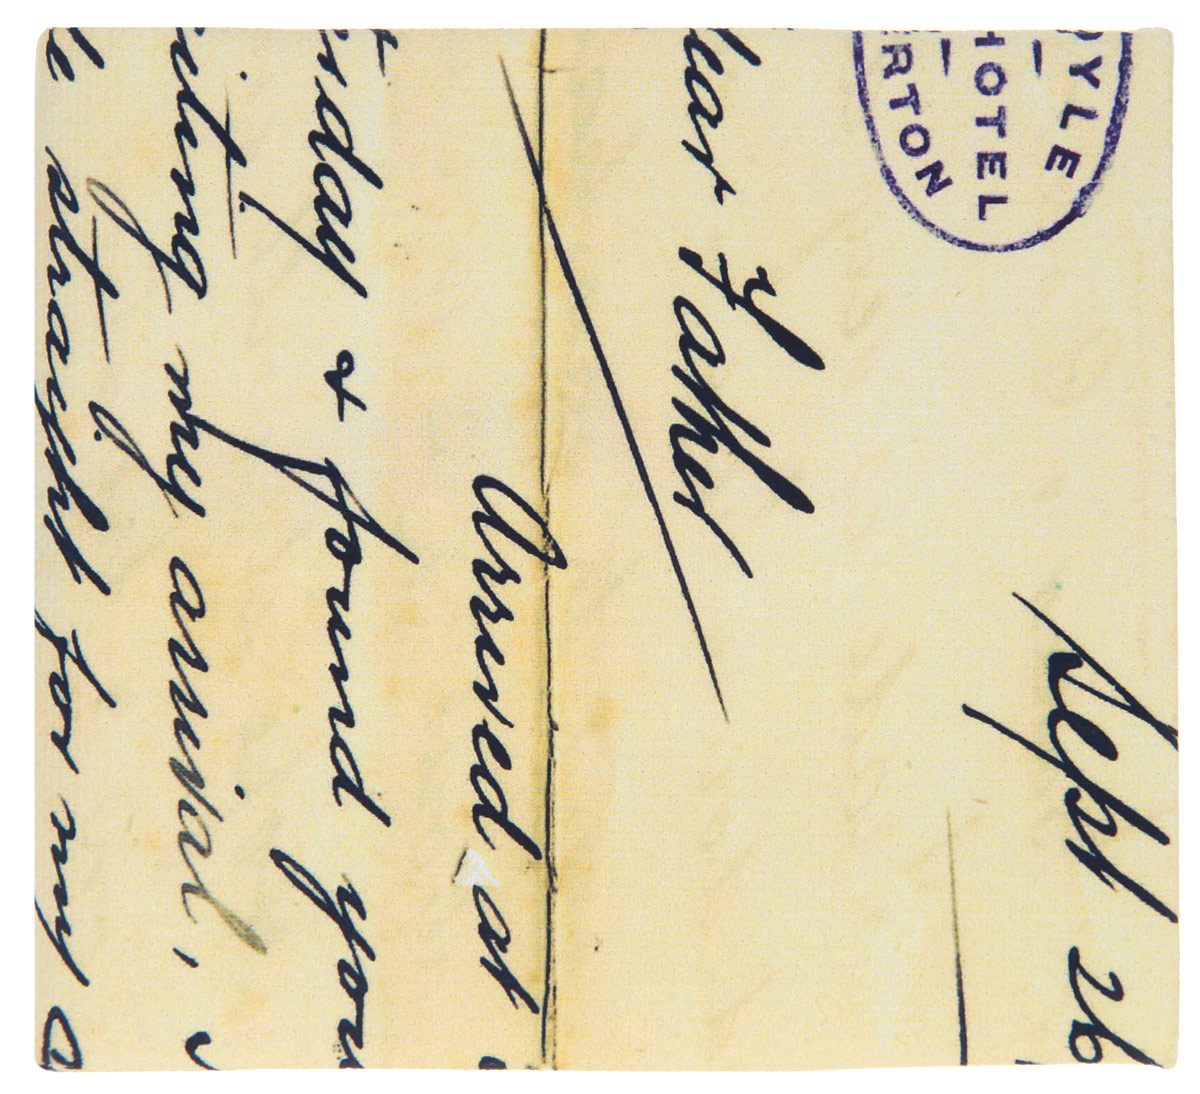 OYLE
HOTEL
ERTON
Sept 26
ear Father
Arrived at
rsday & found you
iting my arrival,
le straight for my